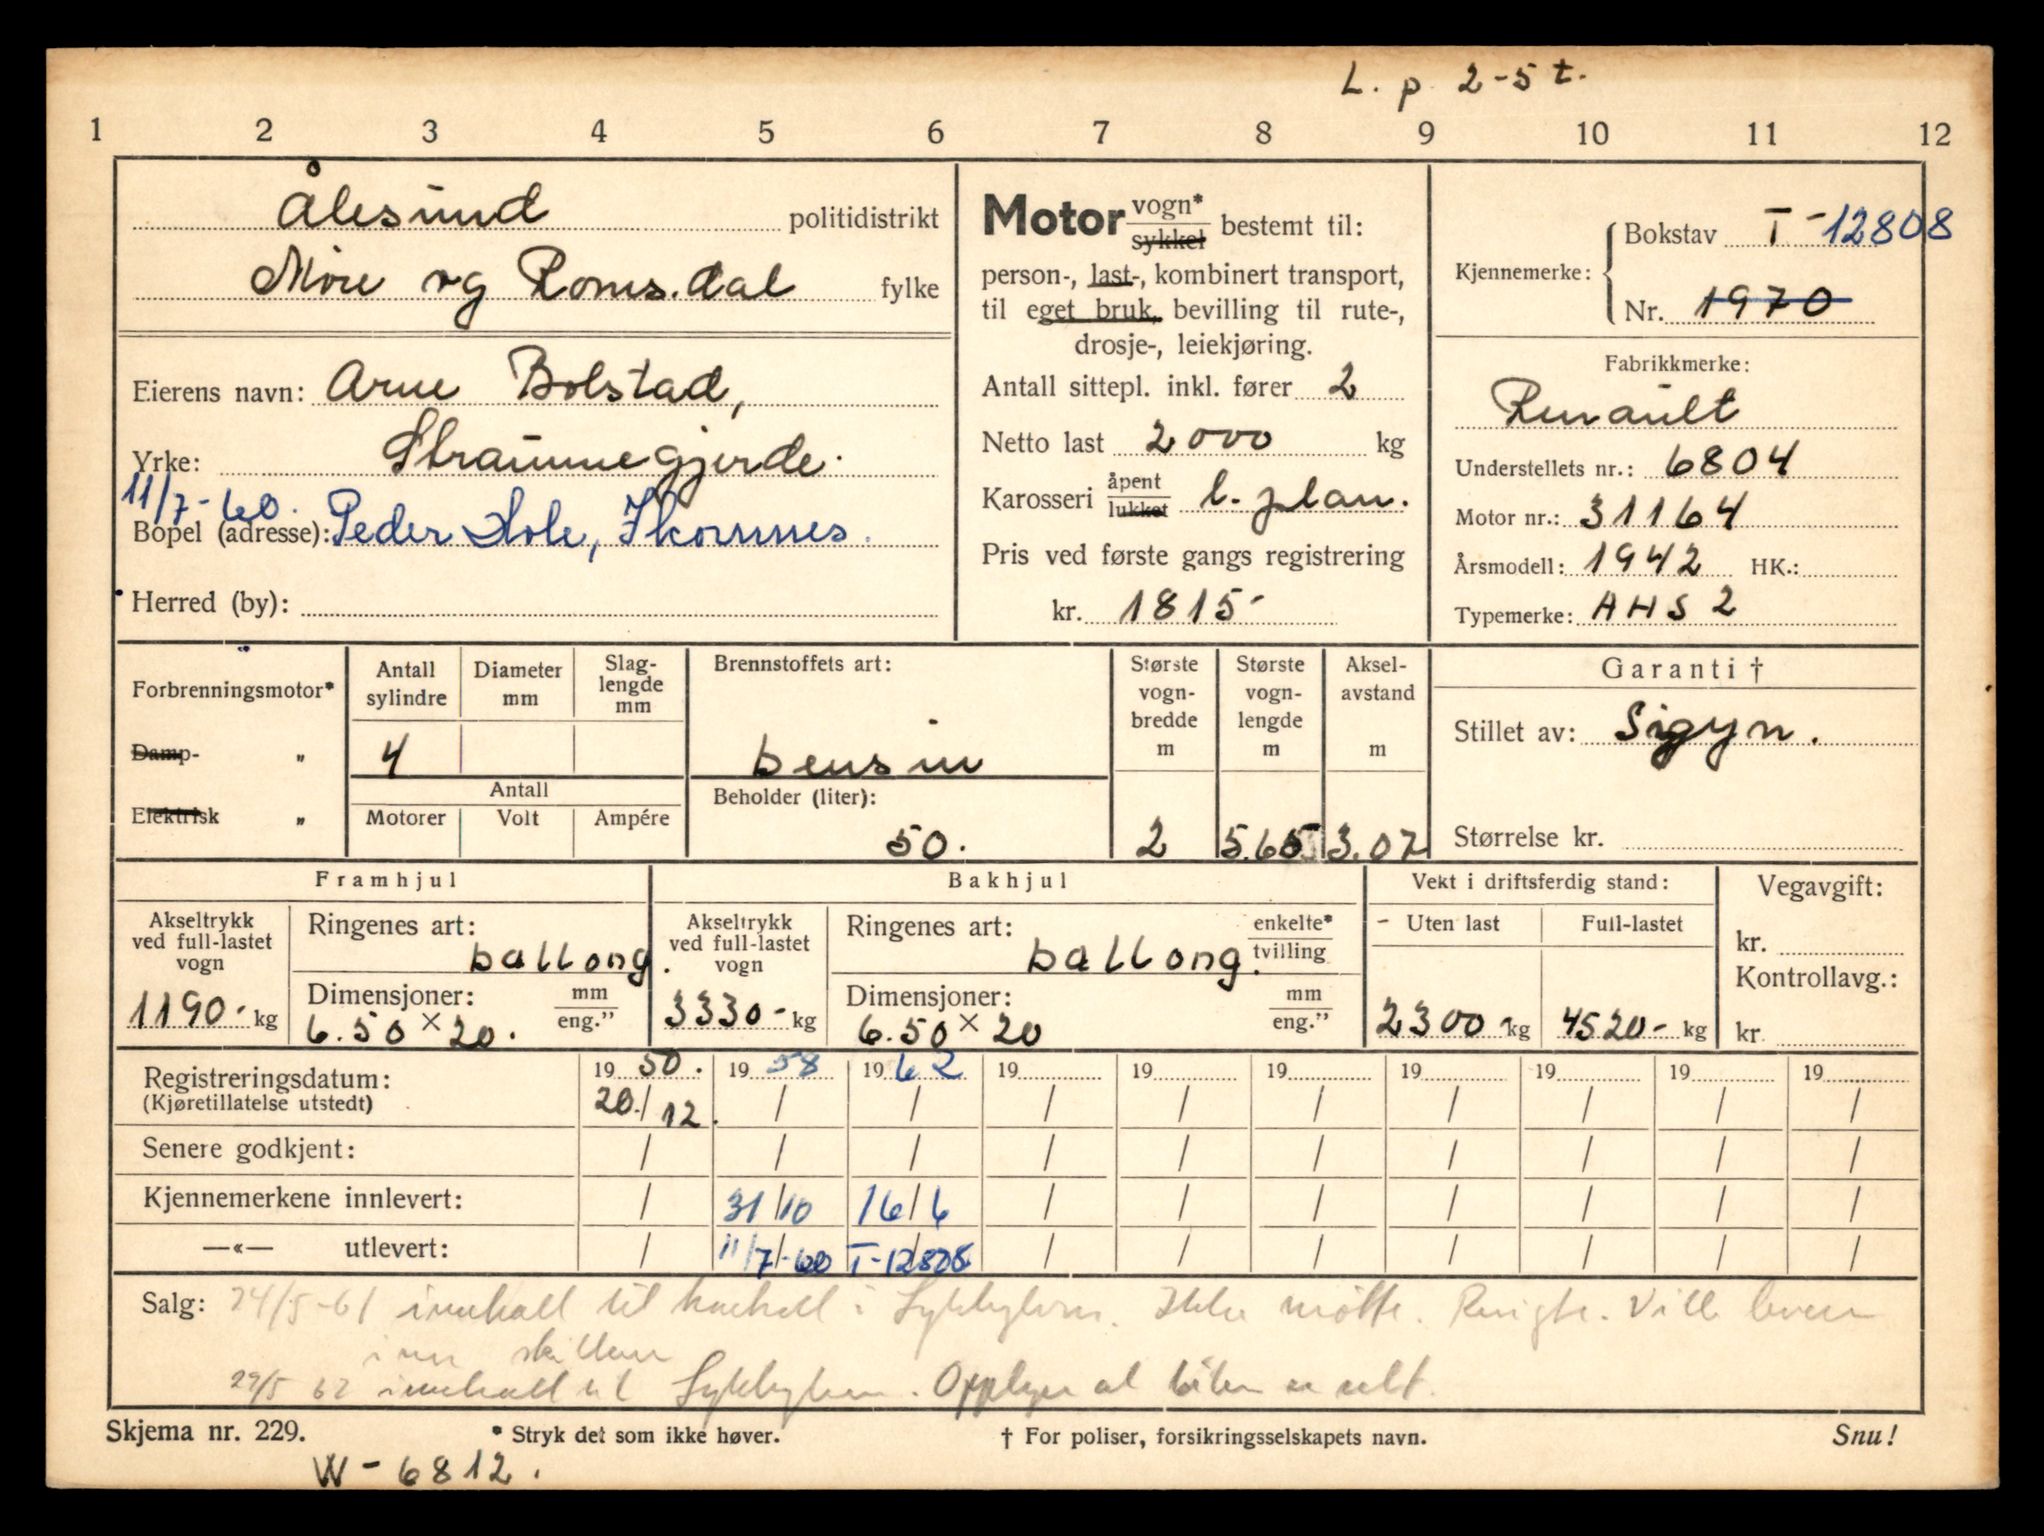 L. p. 2-5 t.
1 2 3 4 5 6 7 8 9 10 11 12
Ålesund politidistrikt
Møre og Romsdal fylke
Eierens navn: Arne Bolstad,
Yrke: Straumegjerde.
11/7-60.
Bopel (adresse): Peder Hole, Ikornnes.
Herred (by):
Motor vogn* sykkel bestemt til:
person-, last-, kombinert transport,
til eget bruk, bevilling til rute-,
drosje-, leiekjøring.
Antall sittepl. inkl. fører 2
Netto last 2000 kg
Karosseri åpent lukket l. plan.
Pris ved første gangs registrering
kr. 1815-
Kjennemerke: Bokstav T-12808
Nr. 1970
Fabrikkmerke:
Renault
Understellets nr.: 6804
Motor nr.: 31164
Årsmodell: 1942 HK.:
Typemerke: AHS 2
Forbrenningsmotor*
Damp- "
Elektrisk "
Antall sylindre
Diameter mm
Slag-lengde mm
4
Antall
Motorer Volt Ampére
Brennstoffets art:
bensin
Beholder (liter):
50.
Største vogn-bredde m
2
Største vogn-lengde m
5.65
Aksel-avstand m
3.07
Garanti †
Stillet av: Sigyn.
Størrelse kr.
Framhjul
Akseltrykk ved full-lastet vogn
1190- kg
Ringenes art:
ballong.
Dimensjoner: mm eng."
6.50 × 20.
Bakhjul
Akseltrykk ved full-lastet vogn
3330- kg
Ringenes art: enkelte* tvilling
ballong.
Dimensjoner: mm eng."
6.50 × 20
Vekt i driftsferdig stand:
- Uten last Full-lastet
2300 kg 4520- kg
Vegavgift:
kr.
Kontrollavg.:
kr.
Registreringsdatum: 19 50. 19 58 19 62 19 19 19 19 19 19 19
(Kjøretillatelse utstedt) 20./12. / / / / / / / / /
Senere godkjent: / / / / / / / / / /
Kjennemerkene innlevert: / 31/10 16/6 / / / / / / /
—«— utlevert: / 11/7-60 T-12808 / / / / / / /
Salg: 24/5-61 innkalt til kontroll i Sykkylven. Ikke møtt. Ringte. Vill levere
inn skiltene
29/5 62 innkalt til Sykkylven. Opplyser at bilen er solt.
Skjema nr. 229. * Stryk det som ikke høver. † For poliser, forsikringsselskapets navn. Snu!
W-6812.